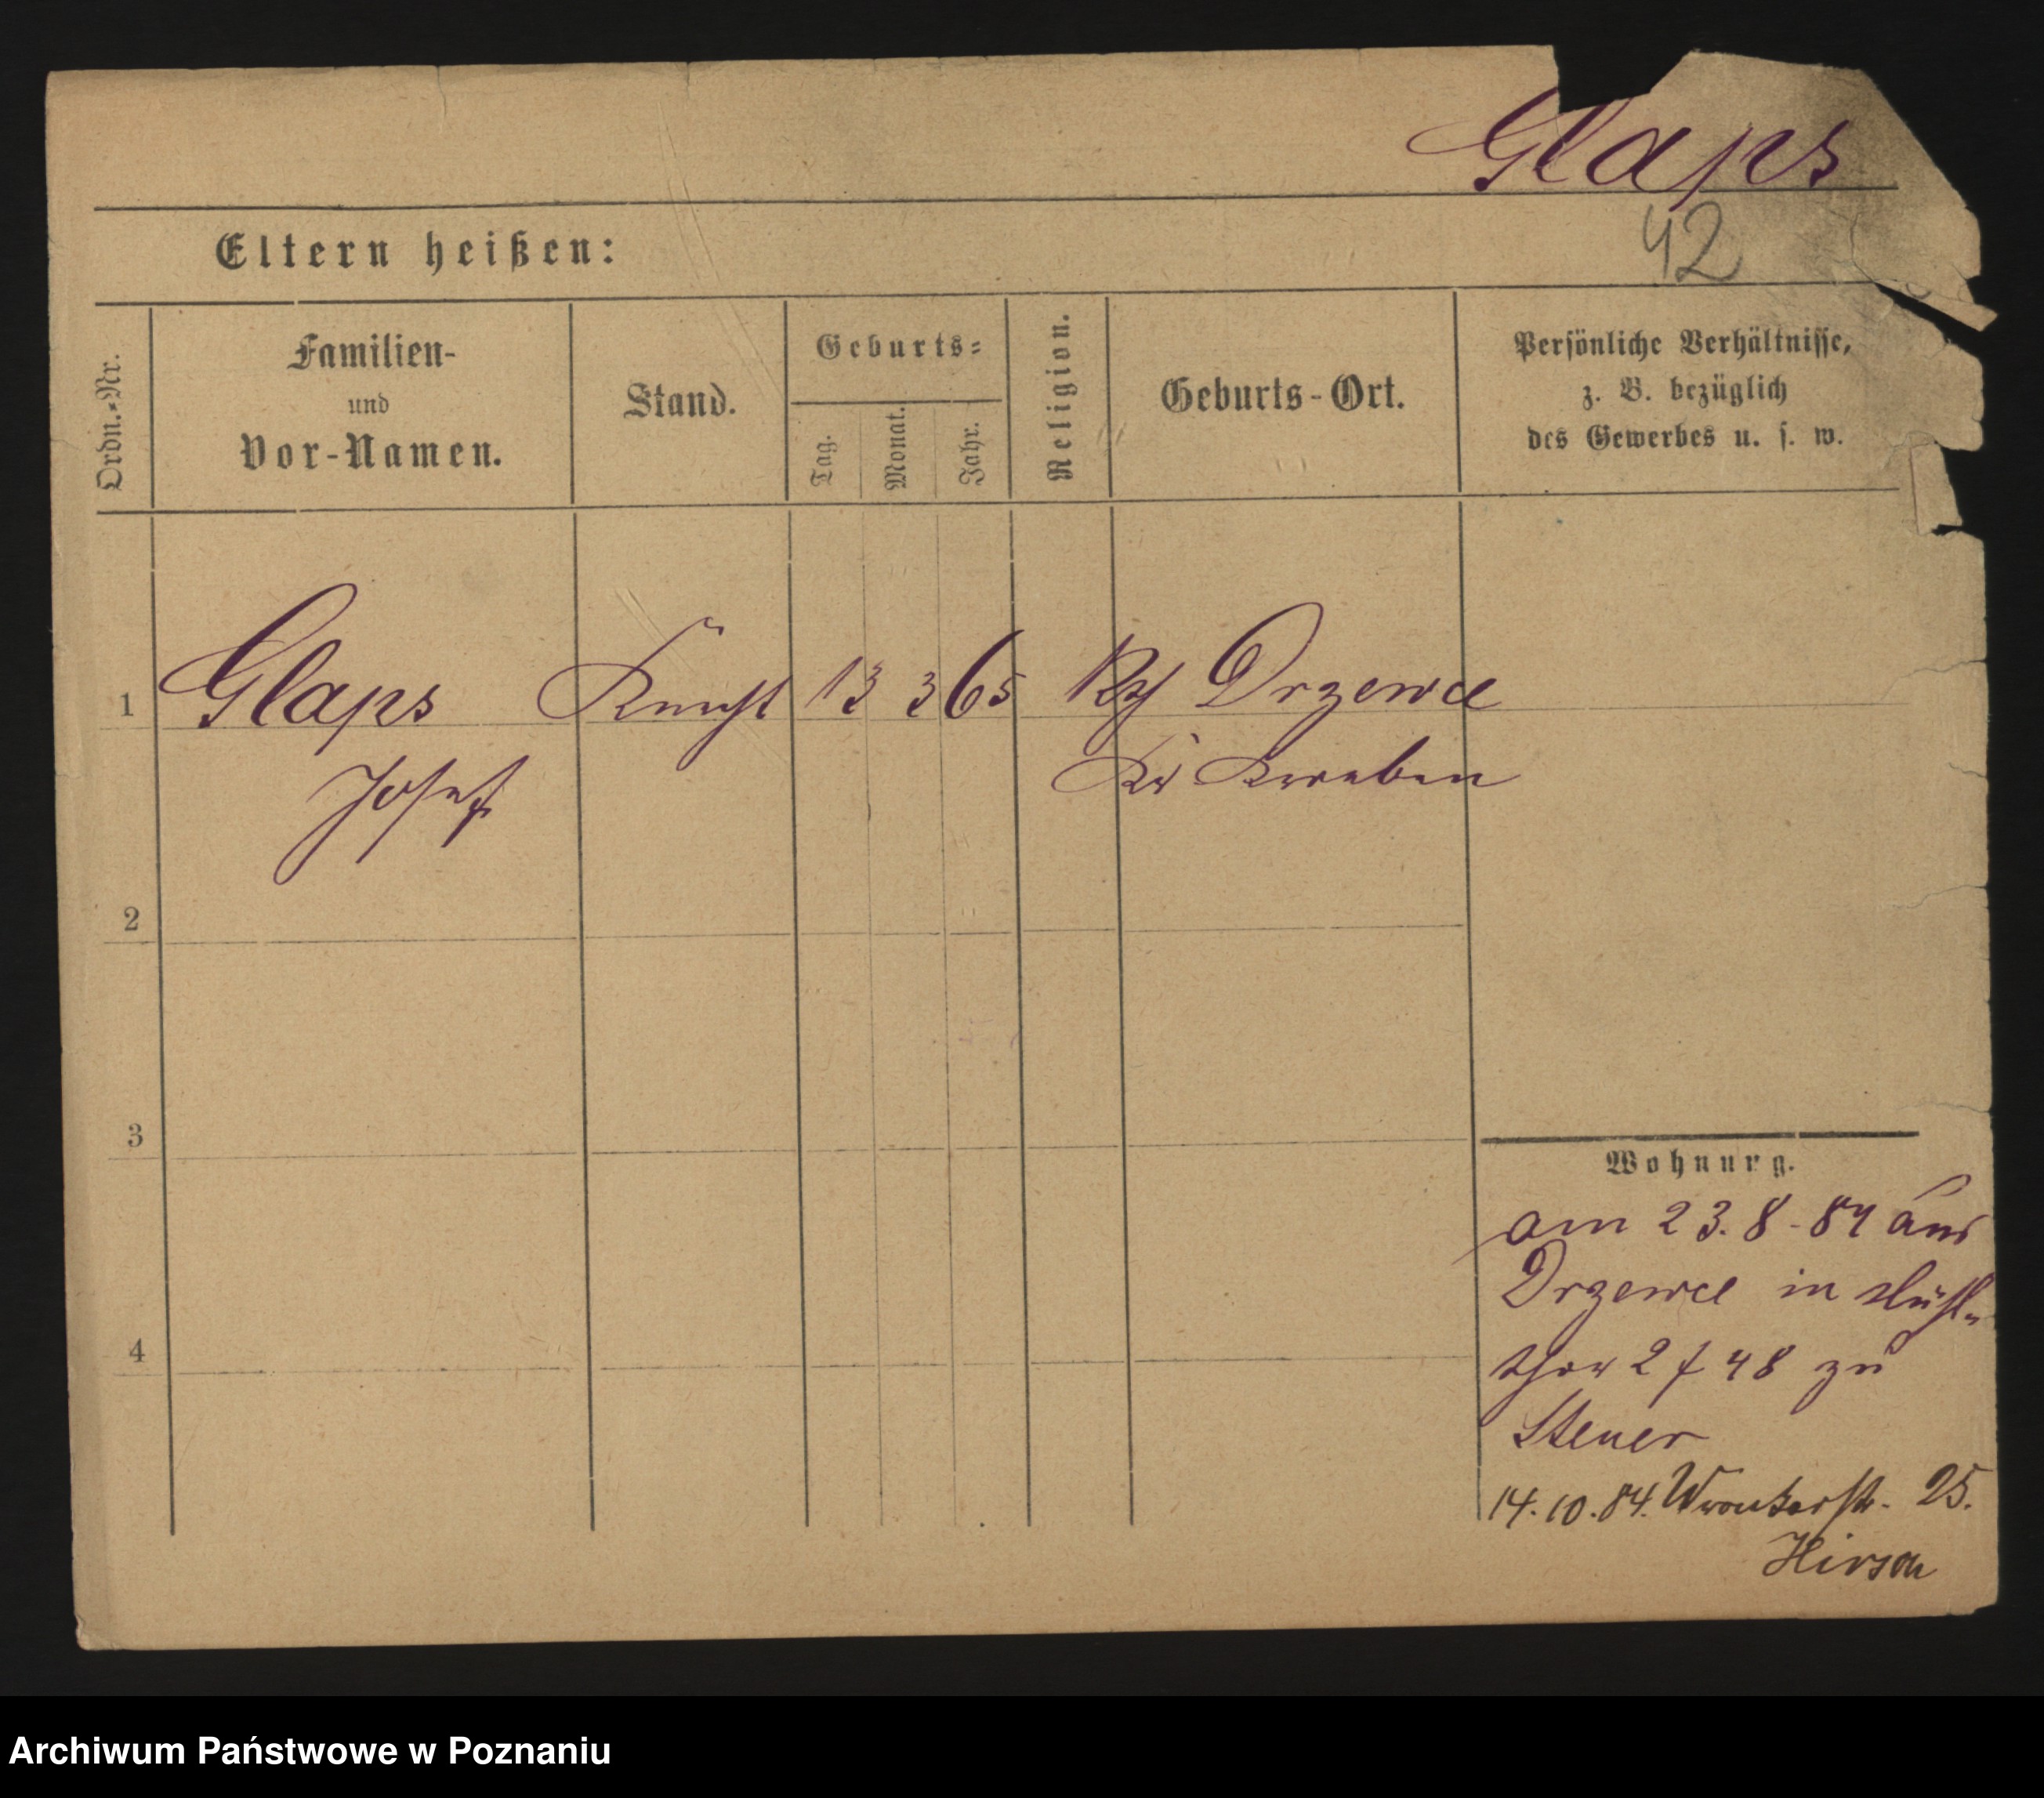 Glaps
42
Eltern heißen:
Ordn.-Nr.
Familien-
und
Vor-Namen.
Stand.
Geburts-
Tag.
Monat.
Jahr.
Religion.
Geburts-Ort.
Persönliche Verhältnisse,
z. B. bezüglich
des Gewerbes u. s. w.
1 Glaps Knecht 13 3 65 Drzewce
Josef Kr Kroeben
2
3
4
Wohnung.
am 23.8-84 aus
Drzewce in Mühl-
thor 2 f 48 zu
Steuer
14.10.84. Wronkerstr. 25.
Hirsch
Archiwum Państwowe w Poznaniu